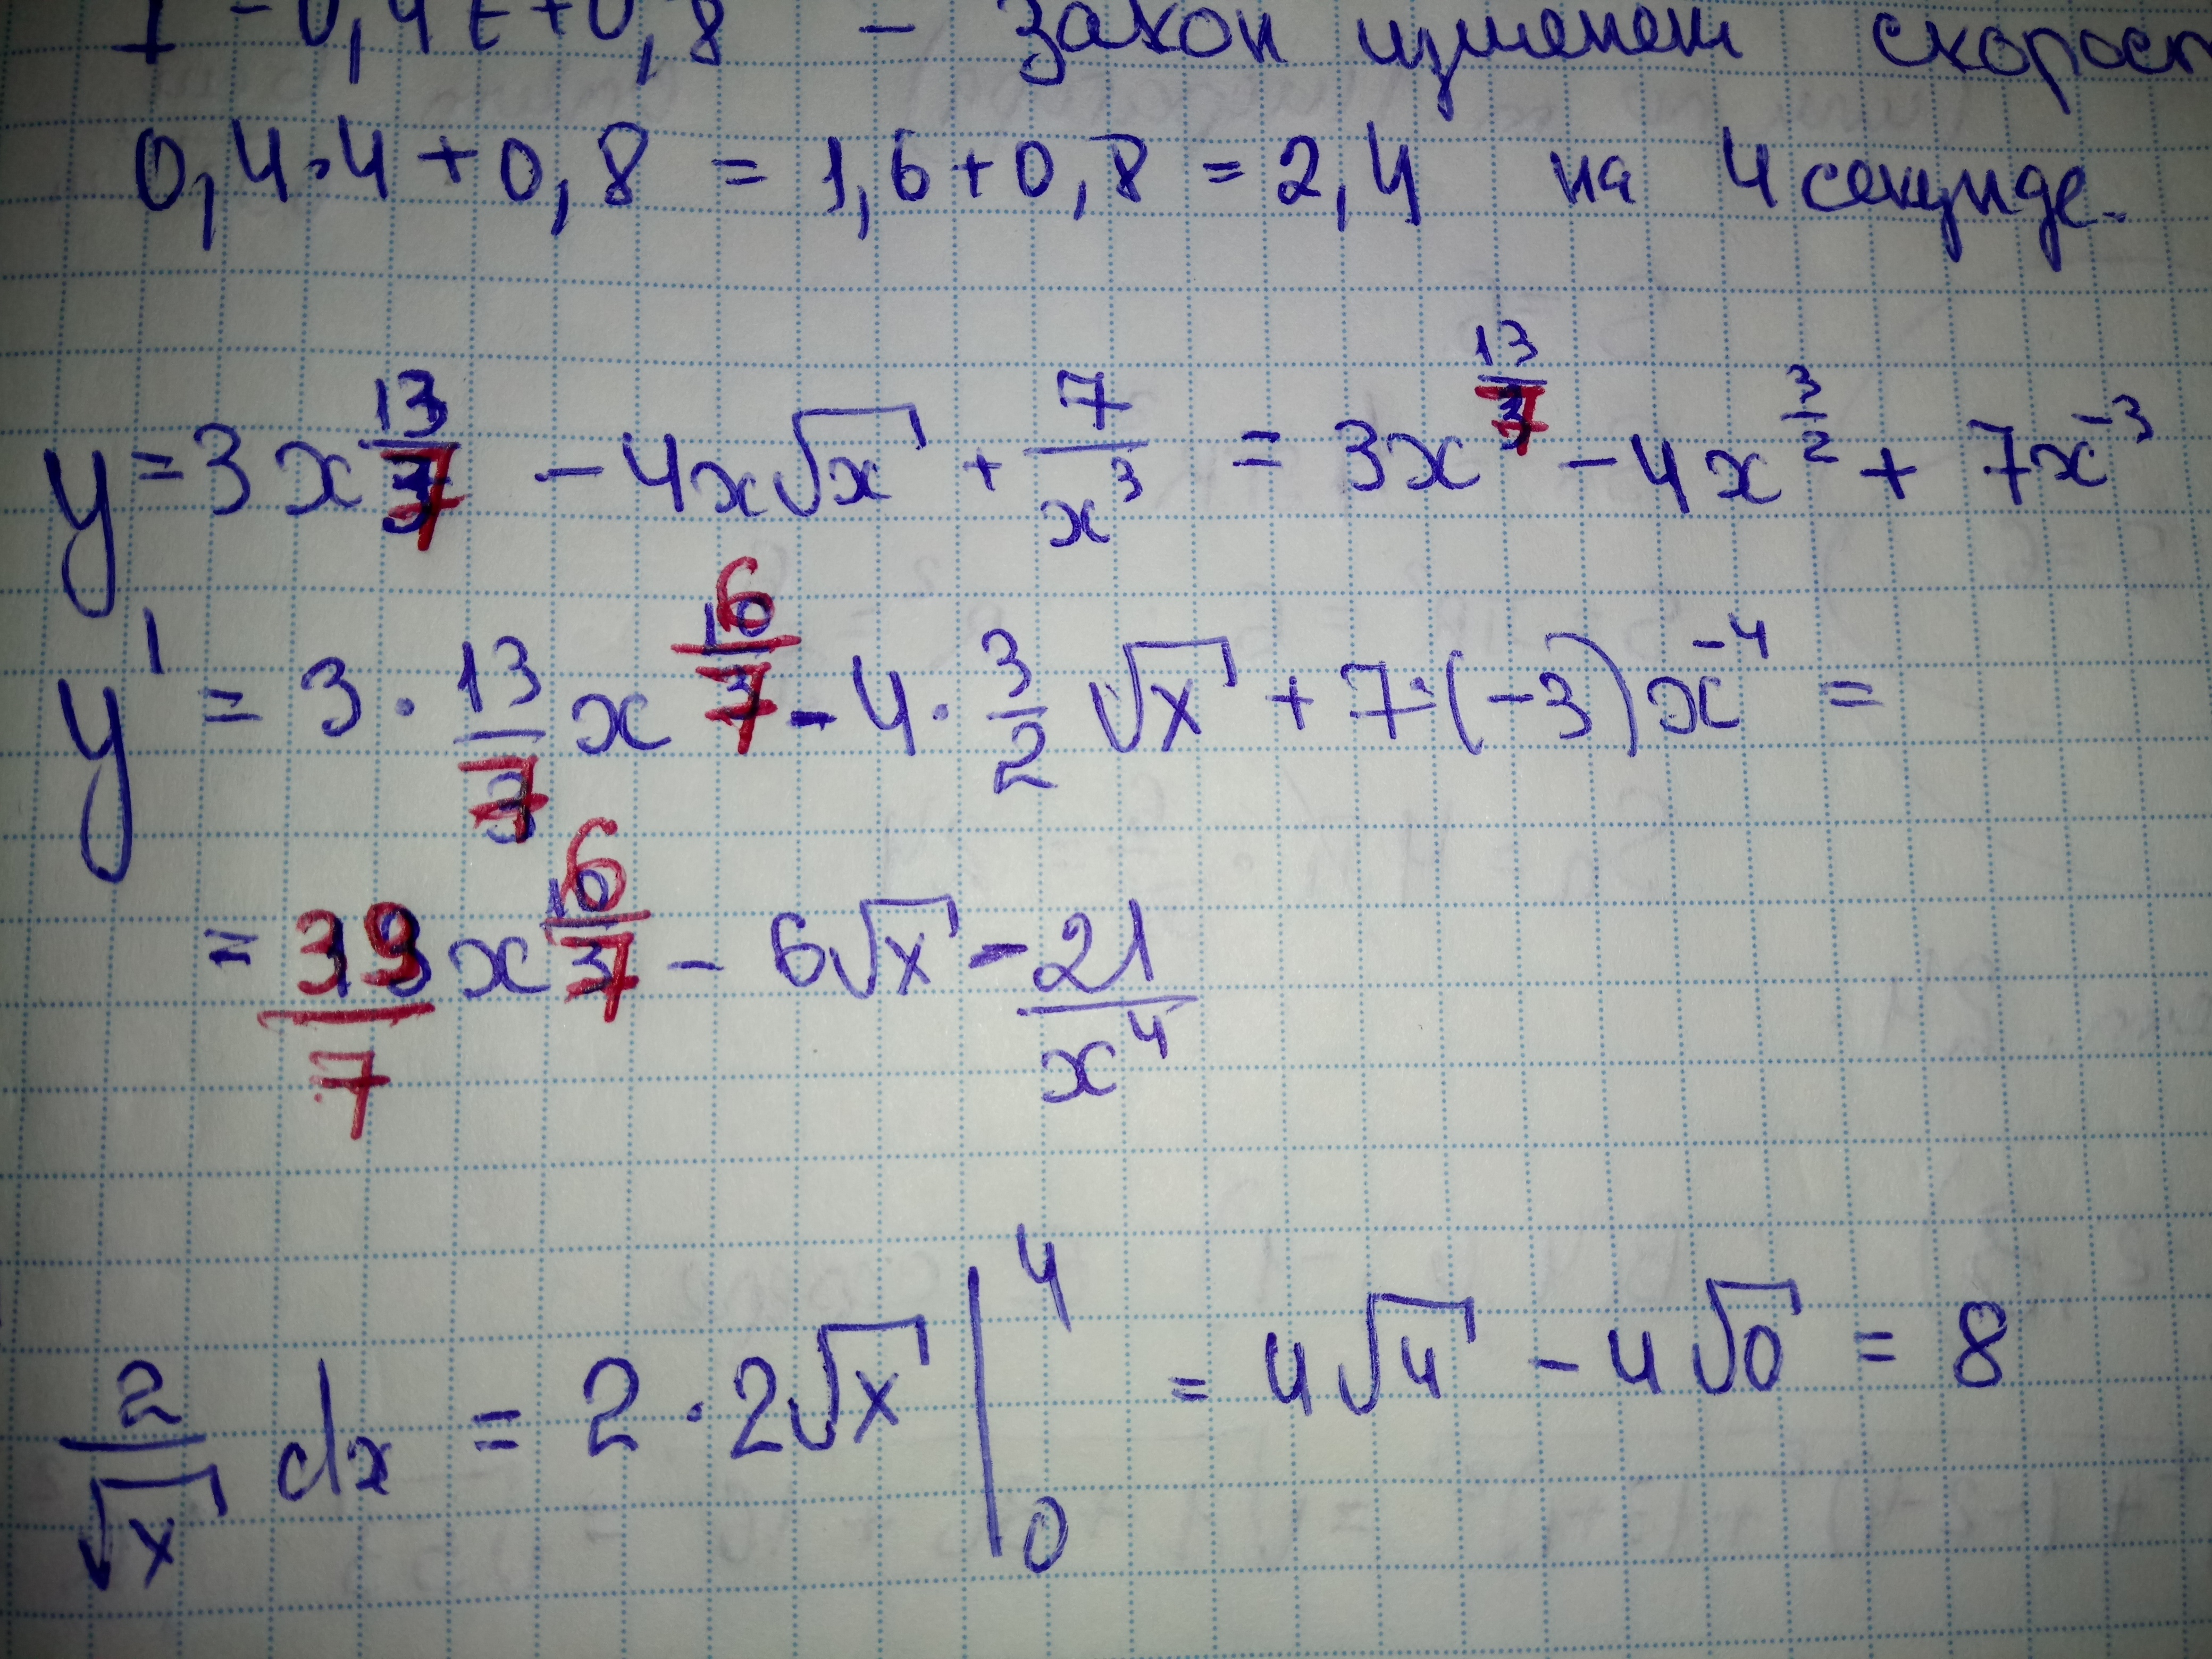 = 0,4t + 0,8 – закон изменен скорост
0,4·4 + 0,8 = 1,6 + 0,8 = 2,4 на 4 секунде.
y = 3x^(13/7) - 4x√x + 7/x^3 = 3x^(13/7) - 4x^(3/2) + 7x^(-3)
y' = 3 · 13/7 x^(6/7) - 4 · 3/2 √x + 7·(-3)x^(-4) =
= 39/7 x^(6/7) - 6√x - 21/x^4
2/√x dx = 2·2√x |_0^4 = 4√4 - 4√0 = 8